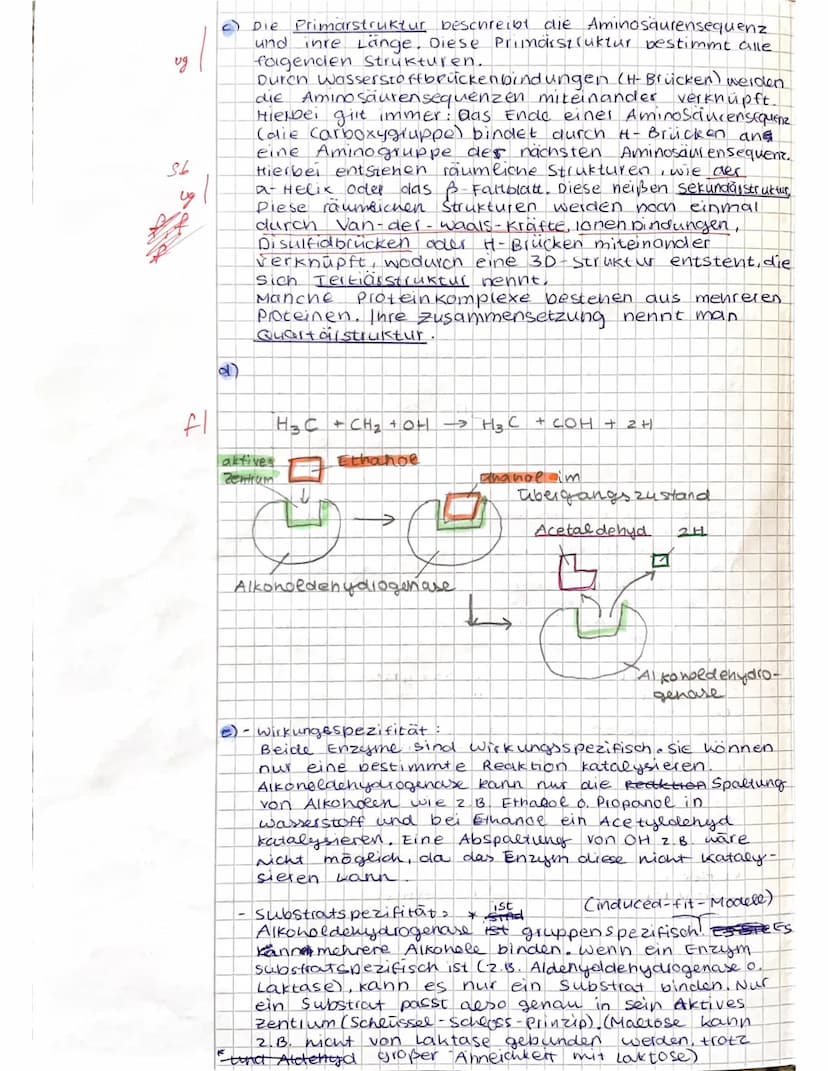 c) Die Primärstruktur beschreibt die Aminosäurensequenz
und ihre Länge. Diese Primärstruktur bestimmt alle
vg folgenden Strukturen.
Durch Wasserstoffbrückenbindungen (H-Brücken) werden
die Aminosäurensequenzen miteinander verknüpft.
Hierbei gilt immer: Das Ende einer Aminosäurensequenz
(die Carboxygruppe) bindet durch H-Brücken ans
eine Aminogruppe der nächsten Aminosäurensequenz.
Sb Hierbei entstehen räumliche Strukturen, wie der
vg α-Helix oder das β-Faltblatt. Diese heißen Sekundärstruktur.
Diese räumlichen Strukturen werden noch einmal
durch Van-der-Waals-Kräfte, Ionenbindungen,
Disulfidbrücken oder H-Brücken miteinander
verknüpft, wodurch eine 3D-Struktur entsteht, die
sich Tertiärstruktur nennt.
Manche Proteinkomplexe bestehen aus mehreren
Proteinen. Ihre Zusammensetzung nennt man
Quartärstruktur.
d)
f H₃C + CH₂ + OH → H₃C + COH + 2H
aktives Ethanol
Zentrum
Ethanol im
Übergangszustand
Acetaldehyd 2H
Alkoholdehydrogenase
Alkoholdehydro-
genase
e) - Wirkungsspezifität:
Beide Enzyme sind wirkungsspezifisch. Sie können
nur eine bestimmte Reaktion katalysieren.
Alkoholdehydrogenase kann nur die Reaktion Spaltung
von Alkoholen wie z.B. Ethanol o. Propanol in
Wasserstoff und bei Ethanol ein Acetyldehyd
katalysieren. Eine Abspaltung von OH z.B. wäre
nicht möglich, da das Enzym diese nicht kataly-
sieren kann.
- Substratspezifität: * ist (induced-fit-Modell)
Alkoholdehydrogenase ist gruppenspezifisch! Es
kann mehrere Alkohole binden. Wenn ein Enzym
substratspezifisch ist (z.B. Aldehyddehydrogenase o.
Laktase), kann es nur ein Substrat binden. Nur
ein Substrat passt also genau in sein Aktives
Zentrum (Schlüssel-Schloss-Prinzip). (Maltose kann
z.B. nicht von Laktase gebunden werden, trotz
* und Aldehyd großer Ähnlichkeit mit Laktose)